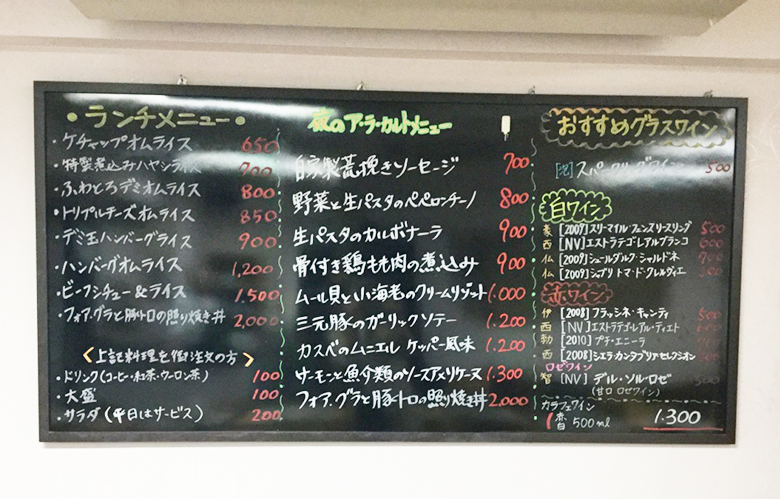 ・ランチメニュー・
・ケチャップオムライス 650
・特製煮込みハヤシライス 700
・ふわとろデミオムライス 800
・トリプルチーズオムライス 850
・デミ玉ハンバーグライス 900
・ハンバーグオムライス 1,200
・ビーフシチュー&ライス 1,500
・フォアグラと豚トロの照り焼き丼 2,000
〈上記料理を御注文の方〉
・ドリンク(コーヒー・紅茶・ウーロン茶) 100
・大盛 100
・サラダ(平日はサービス) 200
夜のア・ラ・カルトメニュー
自家製荒挽きソーセージ 700
野菜と生パスタのペペロンチーノ 800
生パスタのカルボナーラ 900
骨付き鶏もも肉の煮込み 900
ムール貝と小海老のクリームリゾット 1.000
三元豚のガーリックソテー 1.200
カスベのムニエル ケッパー風味 1.200
サーモンと魚介類のソースアメリケーヌ 1.300
フォアグラと豚トロの照り焼き丼 2.000
おすすめグラスワイン
スパークリングワイン 500
白ワイン
豪 [2009]スリーマイル・フェンズリースリング 500
西 [NV]エストラテゴ・レアルブランコ 600
仏 [2009]シュールダルフ・シャルドネ 700
仏 [2009]シャブリ トマ・ド・クレルヴィエ
赤ワイン
伊 [2008]フラッシネ・キャンティ 500
西 [NV]エストラテゴ・レアル・ティエト
勃 [2010]プチ・エニーラ
西 [2008]シエラカンタブリアセレクシオン
ロゼワイン
智 [NV]デル・ソル・ロゼ 500
(甘口 ロゼワイン)
カラフェワイン
500ml 1.300